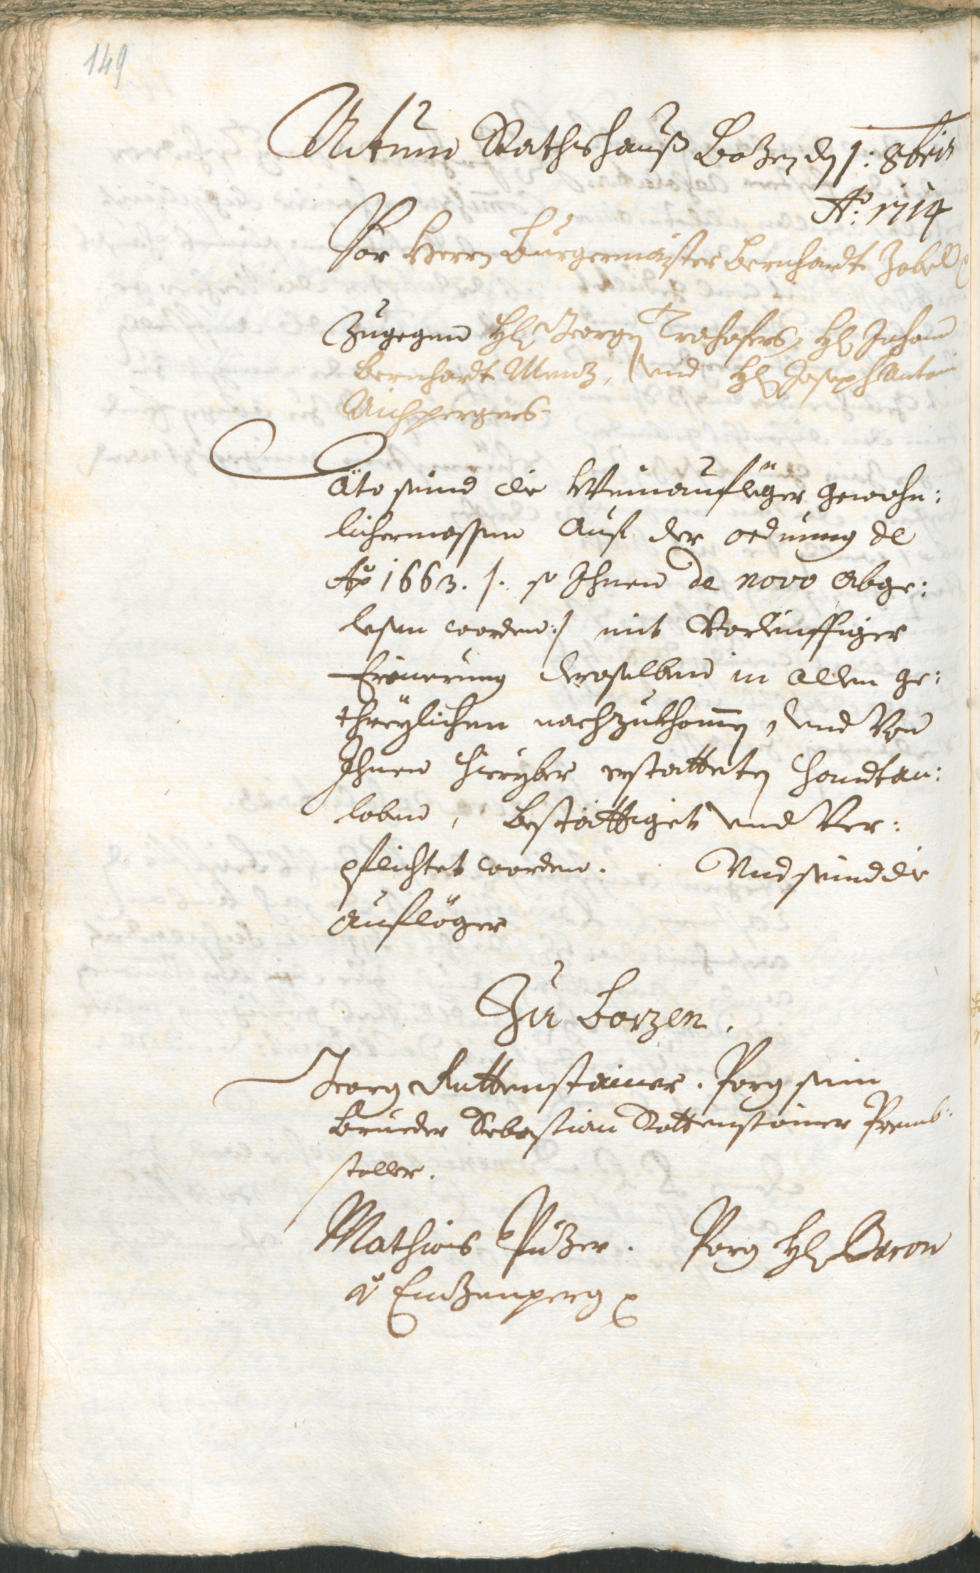 149
Actum Rathshauß Bozen den 1: 8bris
Ao: 1714
Vor Herrn Burgermaister Bernhardt Zobell
Zugegen Hl: Georgen Hl: Johann
Bernhardt Menz, und Hl: Joseph Antoni
Aichpergers
Dato seind die Weinaufleger gewohn:
lichermassen Auf der ordnung de
Ao 1663. /: so Ihnen de novo Abge:
lesen worden :/ mit Vorleuffiger
Erinerung deroselben in allen ge:
threylichen nachzukhomen, und Von
Ihnen hieryber erstatteten handtan:
loben, Bestättiget und Ver:
pflichtet worden. Und seind die
Aufleger
Zu Bozen.
Georg Rottenstainer. Porg sein
Brueder Sebastian Rottenstainer Prembs:
staller.
Mathias Puzer. Porg Hl: Baron
v: Enzenperg